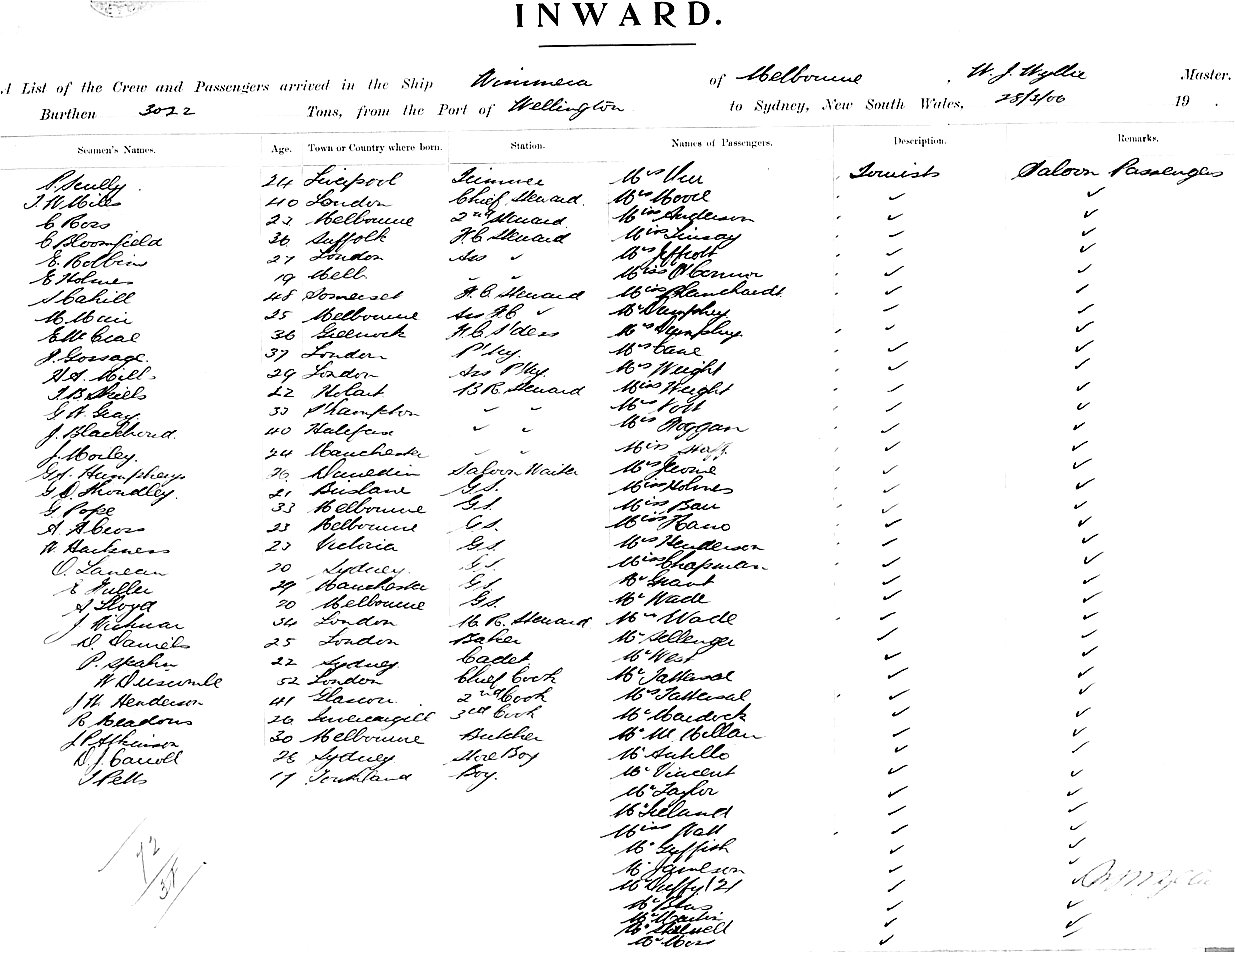 INWARD.
A List of the Crew and Passengers arrived in the Ship Wimmera of Melbourne, W. J. Wyllie Master.
Burthen 3022 Tons, from the Port of Wellington to Sydney, New South Wales, 28/3/06 19 .
Seamen's Names. Age. Town or Country where born. Station. Names of Passengers. Description. Remarks.
P. Scully 24 Liverpool Trimmer Mrs Tourists Saloon Passengers
T W Mills 40 London Chief Steward Mrs Moore ✓ ✓
C Ross 23 Melbourne 2nd Steward Miss Anderson ✓ ✓
C Bloomfield 36 Suffolk F.C Steward Miss Linsay ✓ ✓
E. Robbins 27 London Ass ✓ Mrs Jeffcott ✓ ✓
E Holmes 19 Melb ✓ ✓ Miss O'Connor ✓ ✓
J Cahill 48 Somerset F. C. Steward Miss Blanchardt ✓ ✓
M Muir 25 Melbourne Ass F.C ✓ Mr Dumphy ✓ ✓
E Mc Crae 36 Greenock F.C S'dess Mrs Dumphy ✓ ✓
J. Gossage 37 London P'try Mrs Cane ✓ ✓
H A. Mills 29 London Ass P'try Mrs Weight ✓ ✓
T. B Skiels 42 Hobart B R. Steward Miss Weight ✓ ✓
G H Gray 33 S'hampton ✓ ✓ Mrs Volt ✓ ✓
J. Blackburd 40 Halifax ✓ ✓ Miss Woggan ✓ ✓
J Morley 24 Manchester ✓ ✓ Miss ✓ ✓
G. Humphreys 26 Dunedin Saloon Waiter Mrs Jerome ✓ ✓
G. D. Thondley 21 Brisbane G.S. Miss Holmes ✓ ✓
G Pope 33 Melbourne G.S. Miss Bau ✓ ✓
A A 23 Melbourne G.S. Miss ✓ ✓
W Harkness 23 Victoria G.S. Mrs Henderson ✓ ✓
O. Lanean 20 Sydney G.S. Miss Chapman ✓ ✓
E Fuller 29 Manchester G.S. Mr Grant ✓ ✓
A Lloyd 20 Melbourne G.S. Mr Wade ✓ ✓
J 34 London B. R. Steward Mrs Wade ✓ ✓
D. Daniels 25 London Baker Mr Sellenger ✓ ✓
P. Spahn 22 Sydney Cadet Mr West ✓ ✓
W Duscombe 52 London Chief Cook Mr Tattersal ✓ ✓
J H Henderson 41 Glasgow 2nd Cook Mrs Tattersal ✓ ✓
R Meadows 26 Invercargill 3rd Cook Mr Murdock ✓ ✓
J P Atkinson 30 Melbourne Butcher Mr Mc Millan ✓ ✓
D. J. Carroll 26 Sydney Store Boy Mr ✓ ✓
J Petts 17 Boy. Mr Vincent ✓ ✓
Mr Taylor ✓ ✓
Mr Ireland ✓ ✓
Miss Wall ✓ ✓
Mr ✓ ✓
Mr Jamieson ✓ ✓
Mr Duffy (2) ✓ ✓
Mr ✓ ✓
Mr Martin ✓ ✓
Mr Stilwell ✓ ✓
Mr Moss ✓
72/38